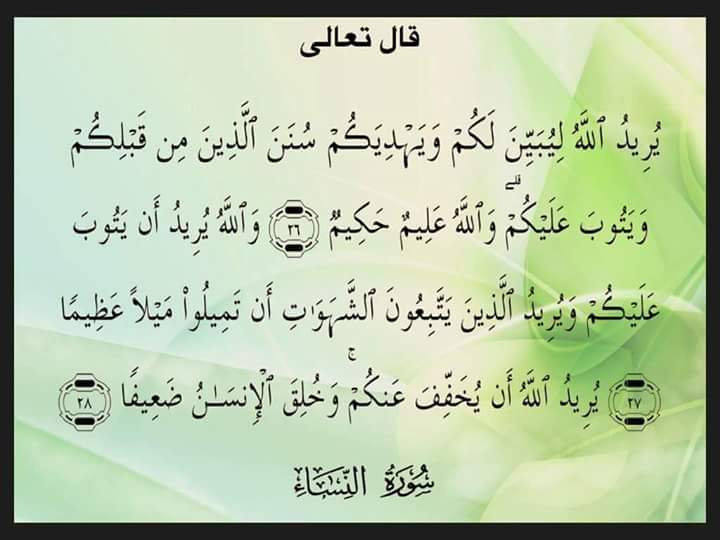 قال تعالى
يُرِيدُ ٱللَّهُ لِيُبَيِّنَ لَكُمْ وَيَهْدِيَكُمْ سُنَنَ ٱلَّذِينَ مِن قَبْلِكُمْ
وَيَتُوبَ عَلَيْكُمْ ۗ وَٱللَّهُ عَلِيمٌ حَكِيمٌ ٢٦ وَٱللَّهُ يُرِيدُ أَن يَتُوبَ
عَلَيْكُمْ وَيُرِيدُ ٱلَّذِينَ يَتَّبِعُونَ ٱلشَّهَوَٰتِ أَن تَمِيلُوا۟ مَيْلًا عَظِيمًا
٢٧ يُرِيدُ ٱللَّهُ أَن يُخَفِّفَ عَنكُمْ ۚ وَخُلِقَ ٱلْإِنسَـٰنُ ضَعِيفًا ٢٨
سُورَةُ النِّسَاءِ